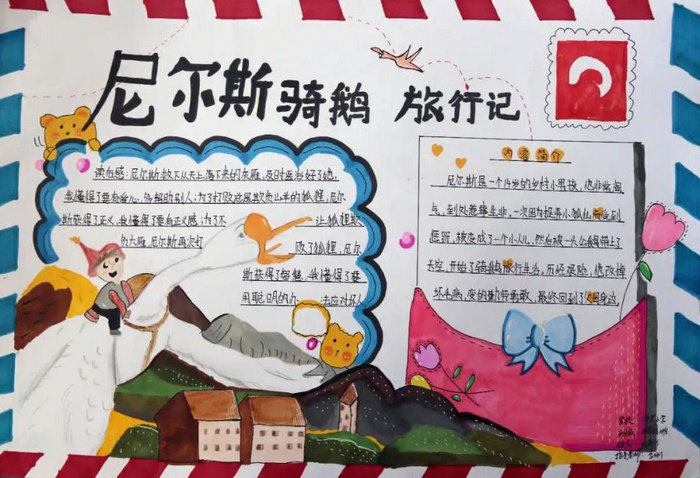 尼尔斯骑鹅 旅行记
读有感:尼尔斯救下从天上落下来的灰雁,及时医治好了她,
我懂得了要有爱心,帮助别人;为了打败总是欺负山羊的狐狸,尼尔
斯获得了正义,我懂得了要有正义感;为了不 让狐狸欺
负大雁,尼尔斯再次打 败了狐狸,尼尔
斯获得了智慧,我懂得了要
用聪明的办 法应对坏人
内容简介
尼尔斯是一个14岁的乡村小男孩,他非常淘
气,到处惹事生非,一次因为捉弄小狐仙而受到
惩罚,被变成了一个小人儿,然后被一头公鹅带上了
天空,开始了骑鹅旅行生活,历经艰险,他改掉
坏毛病,变的勤劳勇敢,最终回到了父母身边